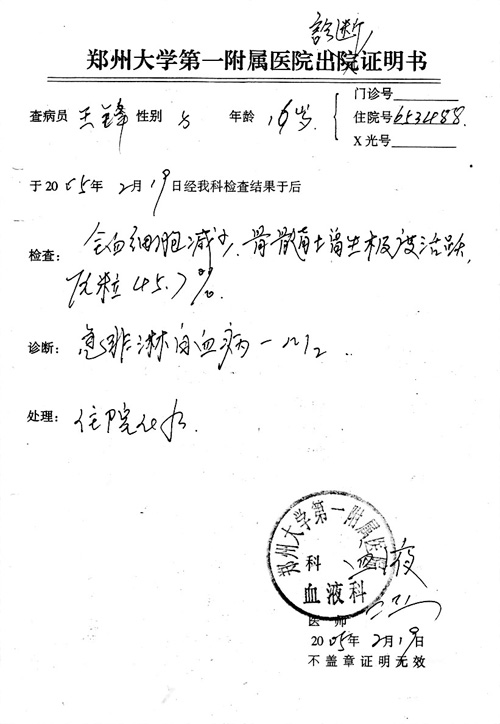 诊断
郑州大学第一附属医院出院证明书
门诊号
查病员 王锋 性别 男 年龄 16岁 住院号 653488
X光号
于2005年2月19日经我科检查结果于后
检查: 全血细胞减少,骨髓增生极度活跃,
原粒45.7%
诊断: 急非淋白血病-M2
处理: 住院化疗.
郑州大学第一附属医院
血液科
科 血液
医师
2005年2月19日
不盖章证明无效